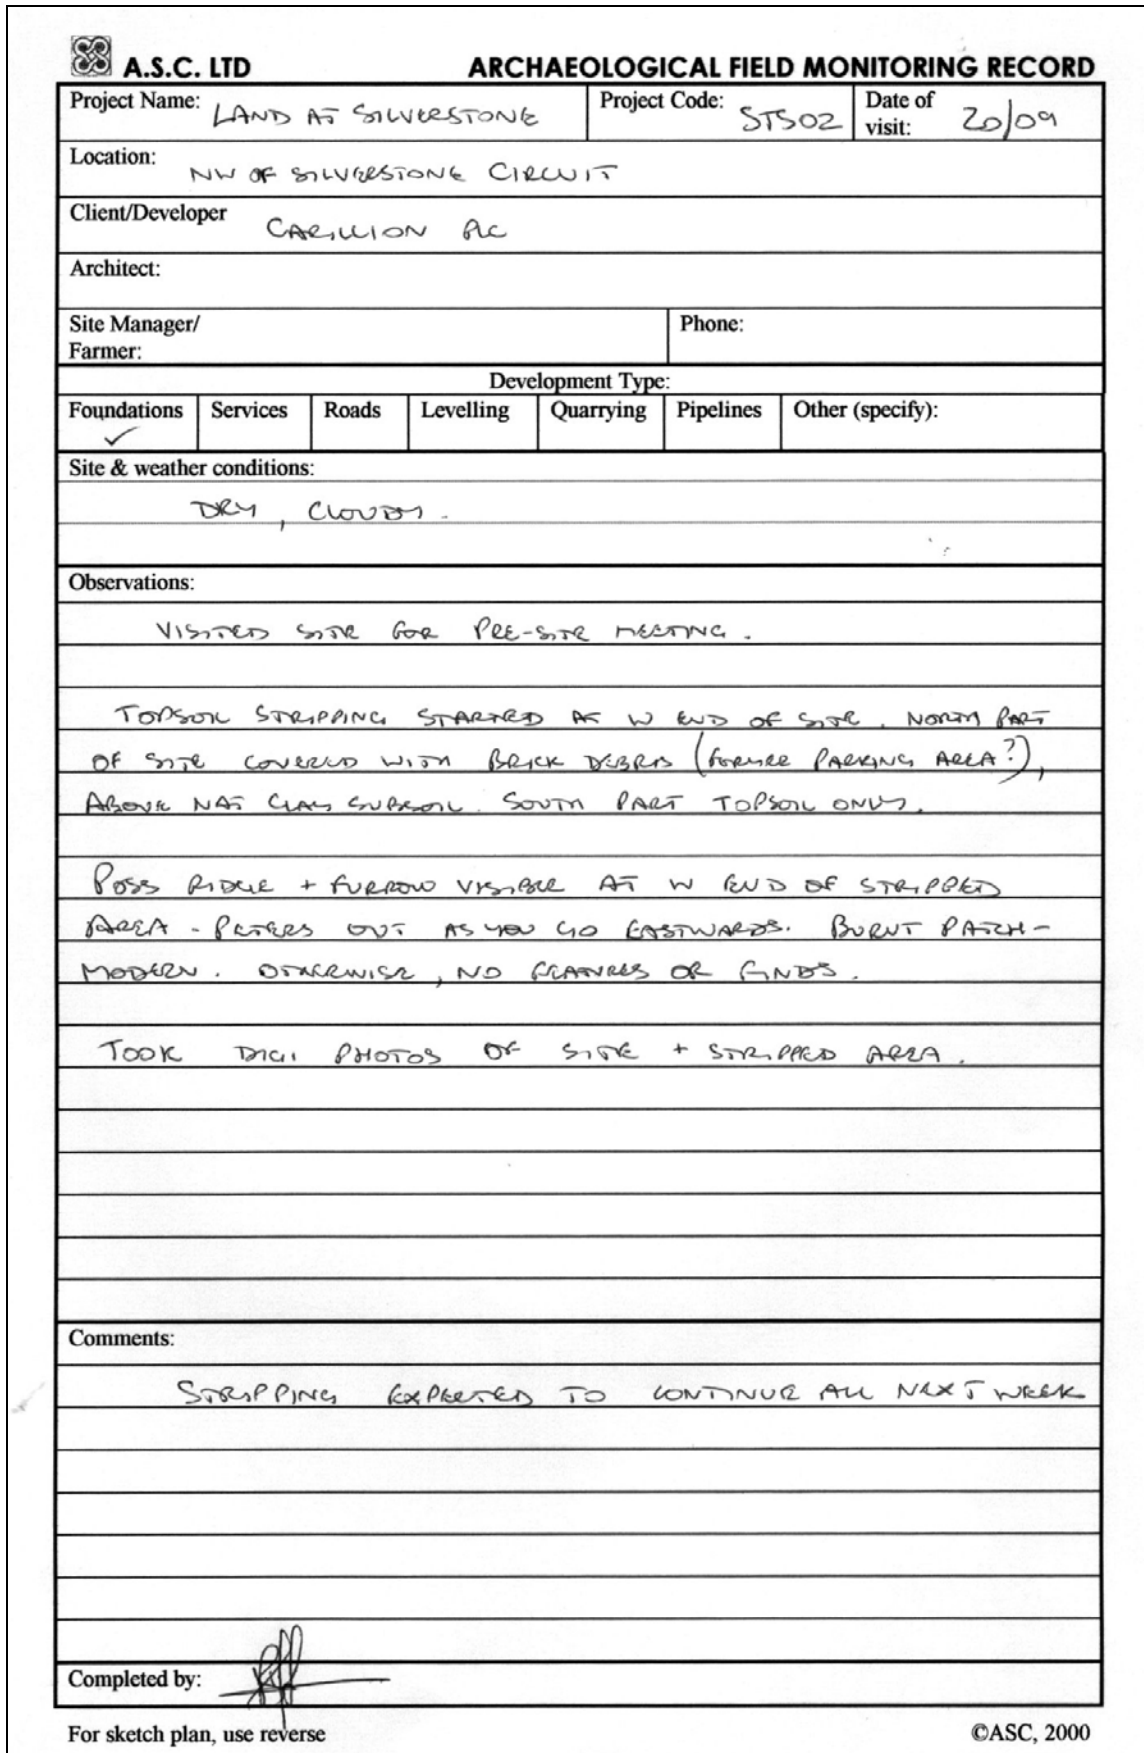 A.S.C. LTD ARCHAEOLOGICAL FIELD MONITORING RECORD
Project Name: LAND AT SILVERSTONE Project Code: STS02 Date of visit: 20/09
Location: NW OF SILVERSTONE CIRCUIT
Client/Developer CARILLION PLC
Architect:
Site Manager/ Phone:
Farmer:
Development Type:
Foundations Services Roads Levelling Quarrying Pipelines Other (specify):
✓
Site & weather conditions:
DRY, CLOUDY.
Observations:
VISITED SITE FOR PRE-SITE MEETING.
TOPSOIL STRIPPING STARTED AT W END OF SITE. NORTH PART
OF SITE COVERED WITH BRICK DEBRIS (FORMER PARKING AREA?),
ABOVE NAT CLAY SUBSOIL. SOUTH PART TOPSOIL ONLY.
POSS RIDGE + FURROW VISIBLE AT W END OF STRIPPED
AREA - PETERS OUT AS YOU GO EASTWARDS. BURNT PATCH -
MODERN. OTHERWISE, NO FEATURES OR FINDS.
TOOK DIGI PHOTOS OF SITE + STRIPPED AREA.
Comments:
STRIPPING EXPECTED TO CONTINUE ALL NEXT WEEK
Completed by:
For sketch plan, use reverse ©ASC, 2000